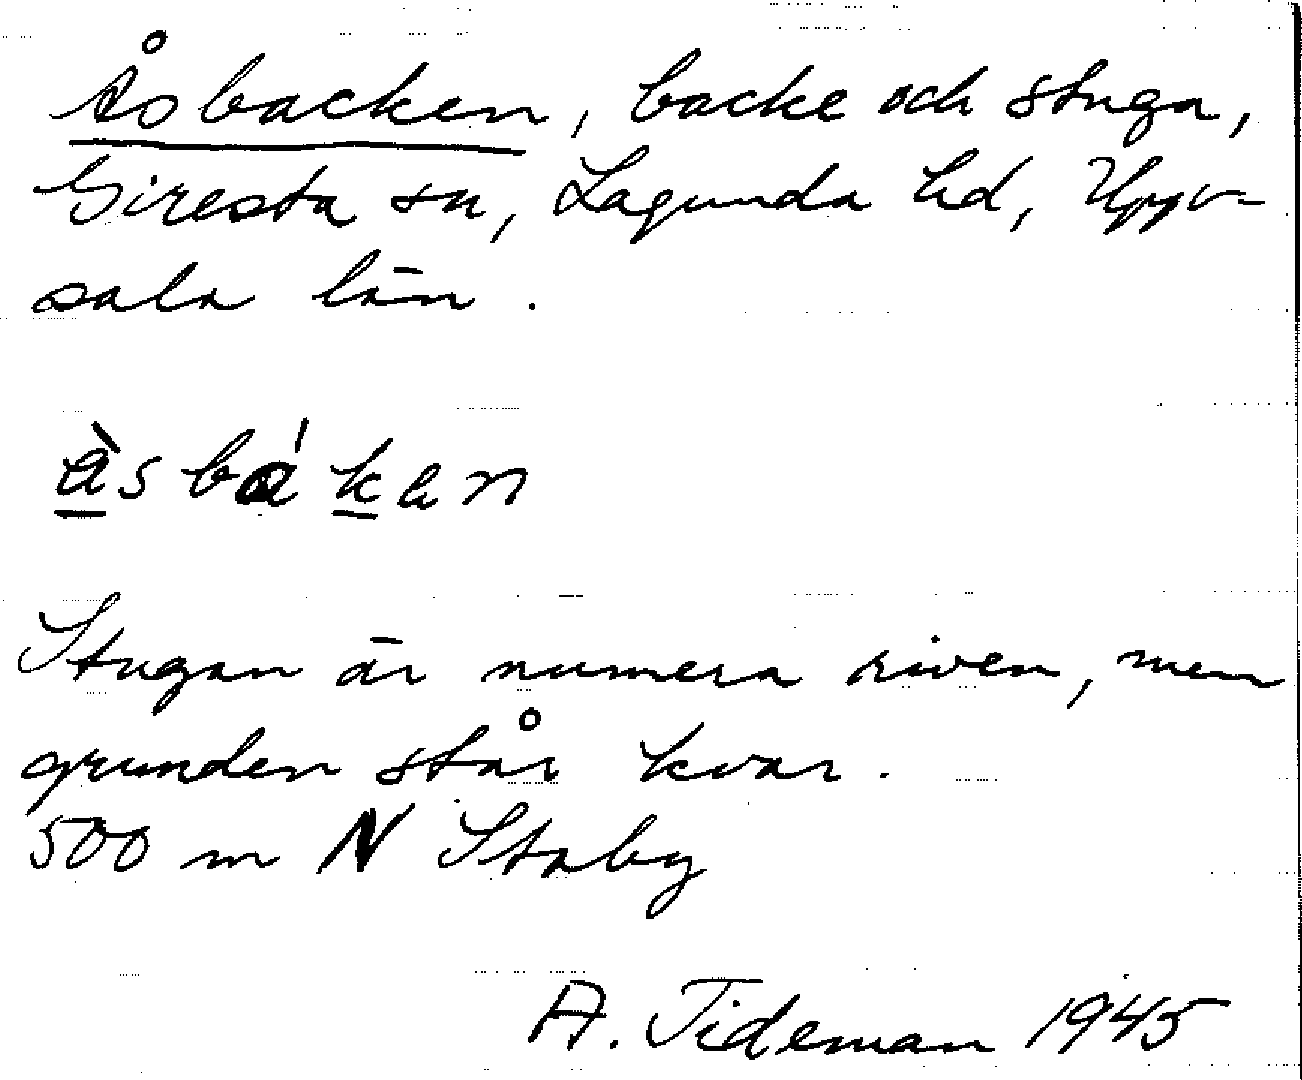 Åsbacken, backe och stuga,
Giresta sn, Lagunda hd, Upp-
sala län.
Stugan är numera riven, men
grunden står kvar.
500 m N Staby
A. Tideman 1945